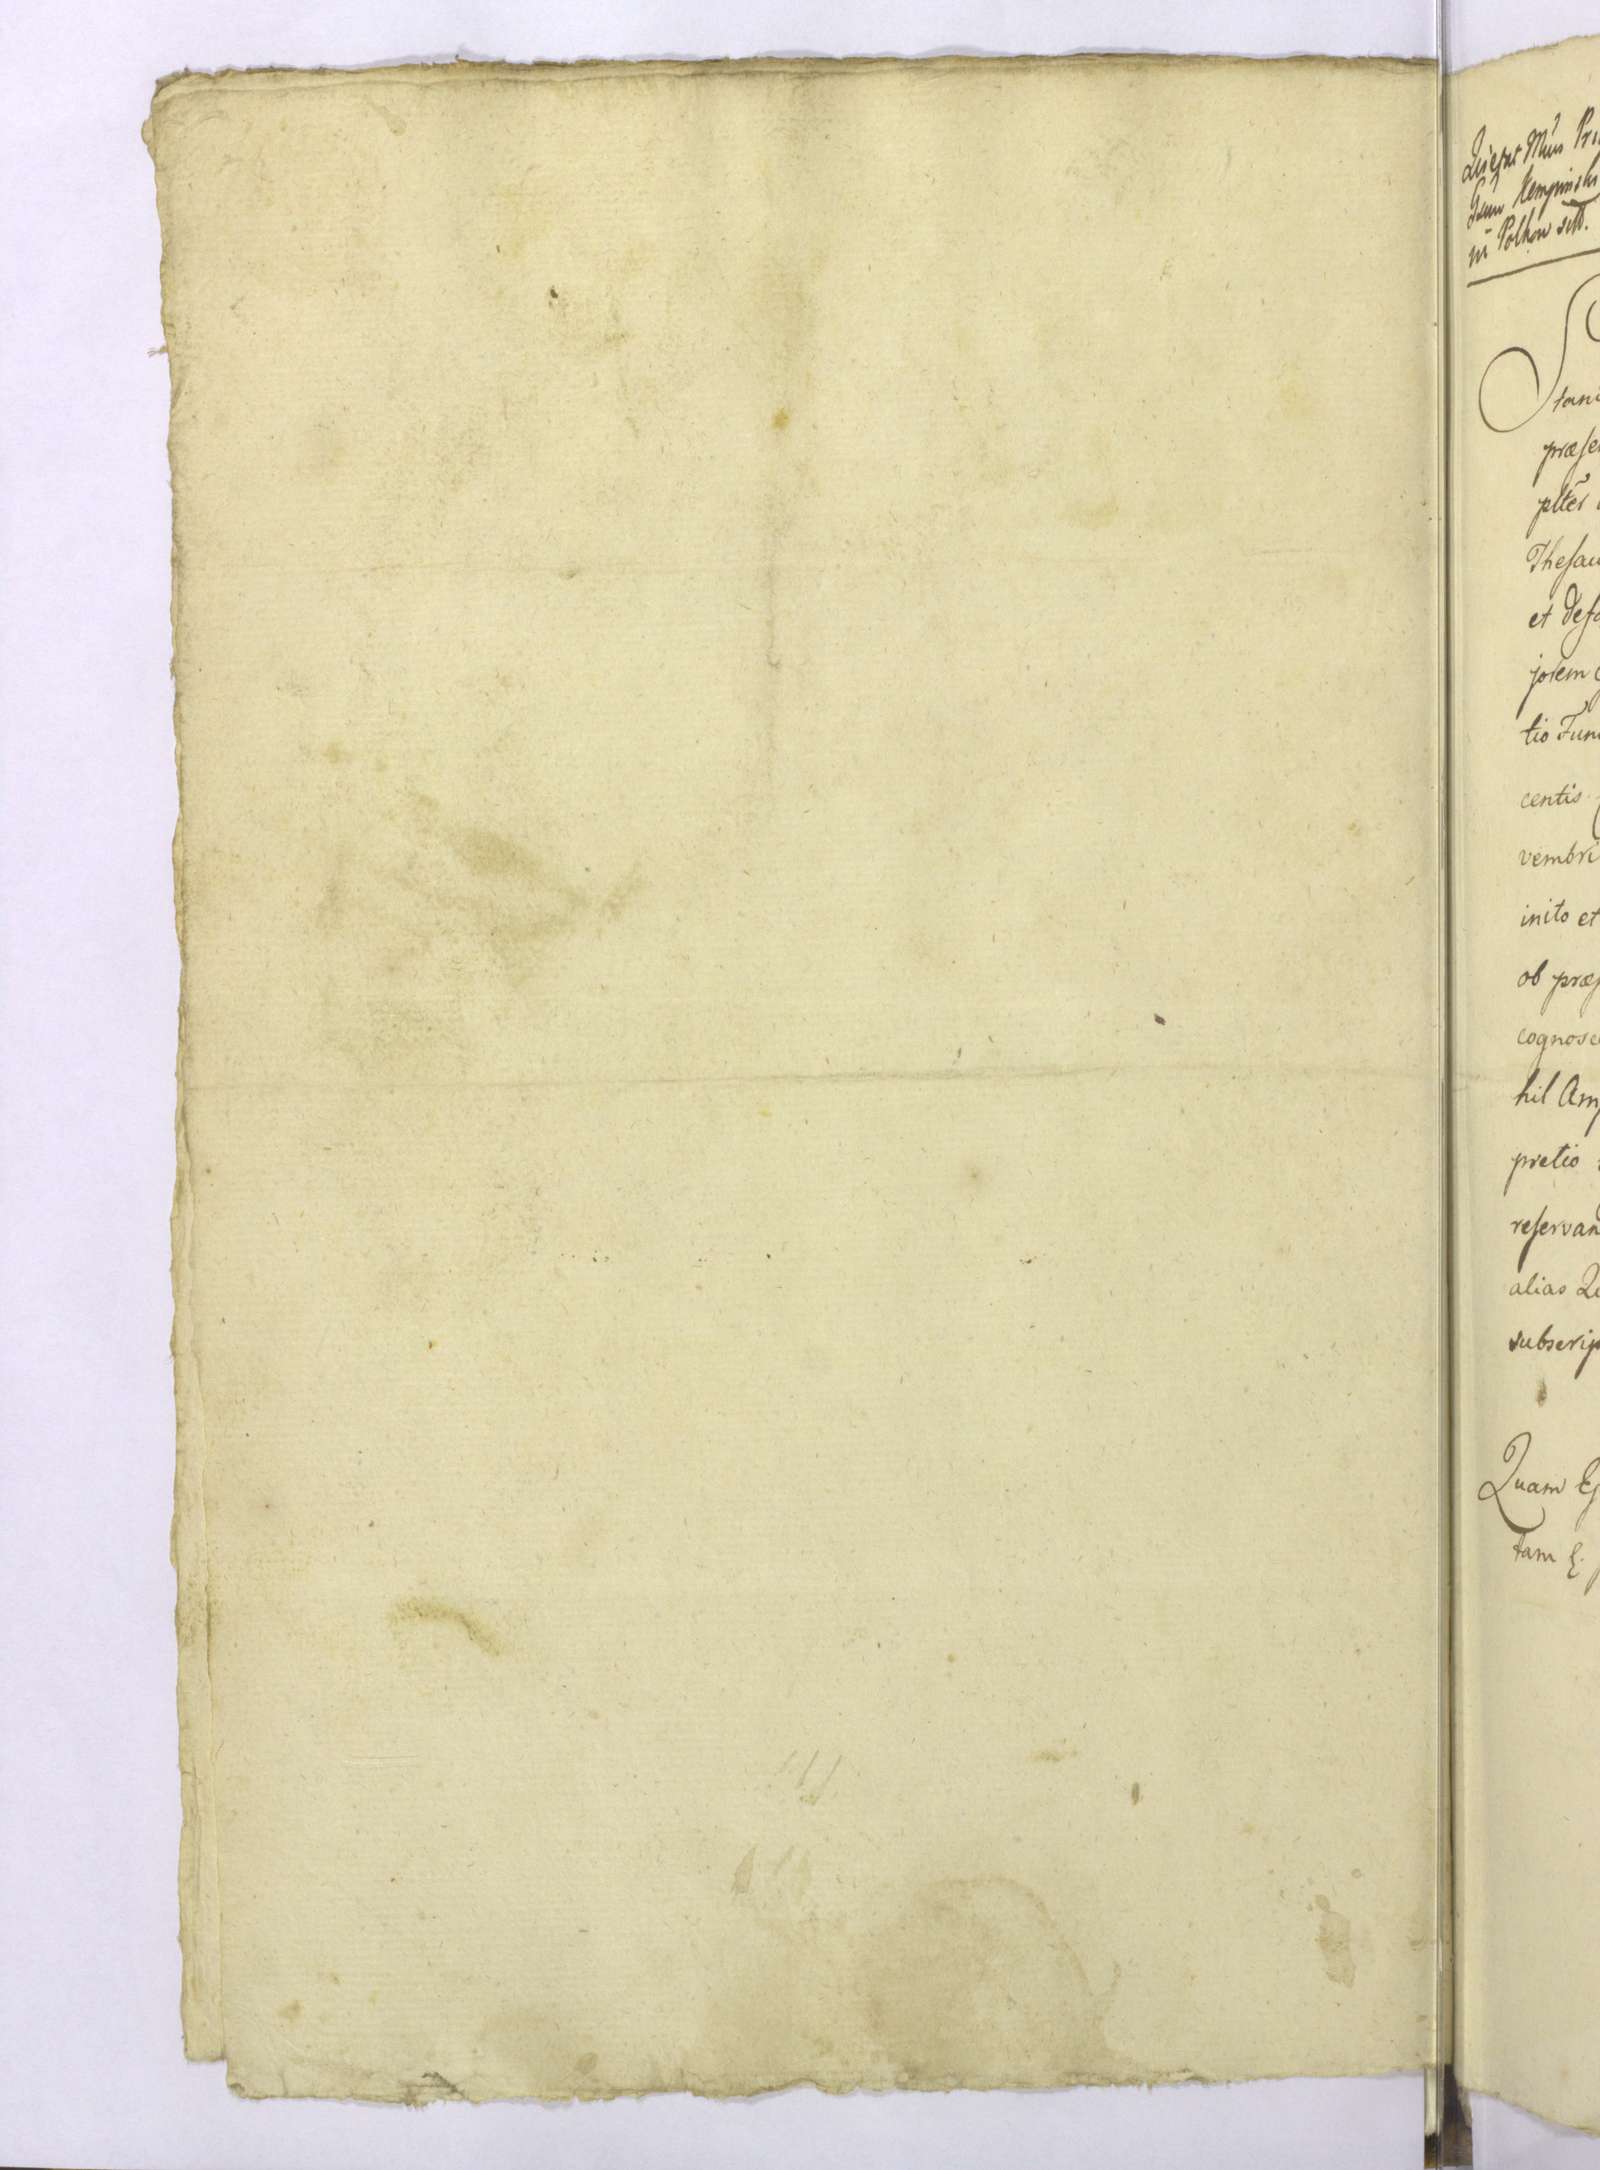 Quietat Mcus Pri
Gsum Kempinski
in Polhow
Stani
præse
ptes
Thesau
et Defo
jorem
tio Fun
centis
vembri
inito et
ob præ
cognosce
hil Am
pretio
reservan
alias Qu
subscrip
Quam Eg
tam